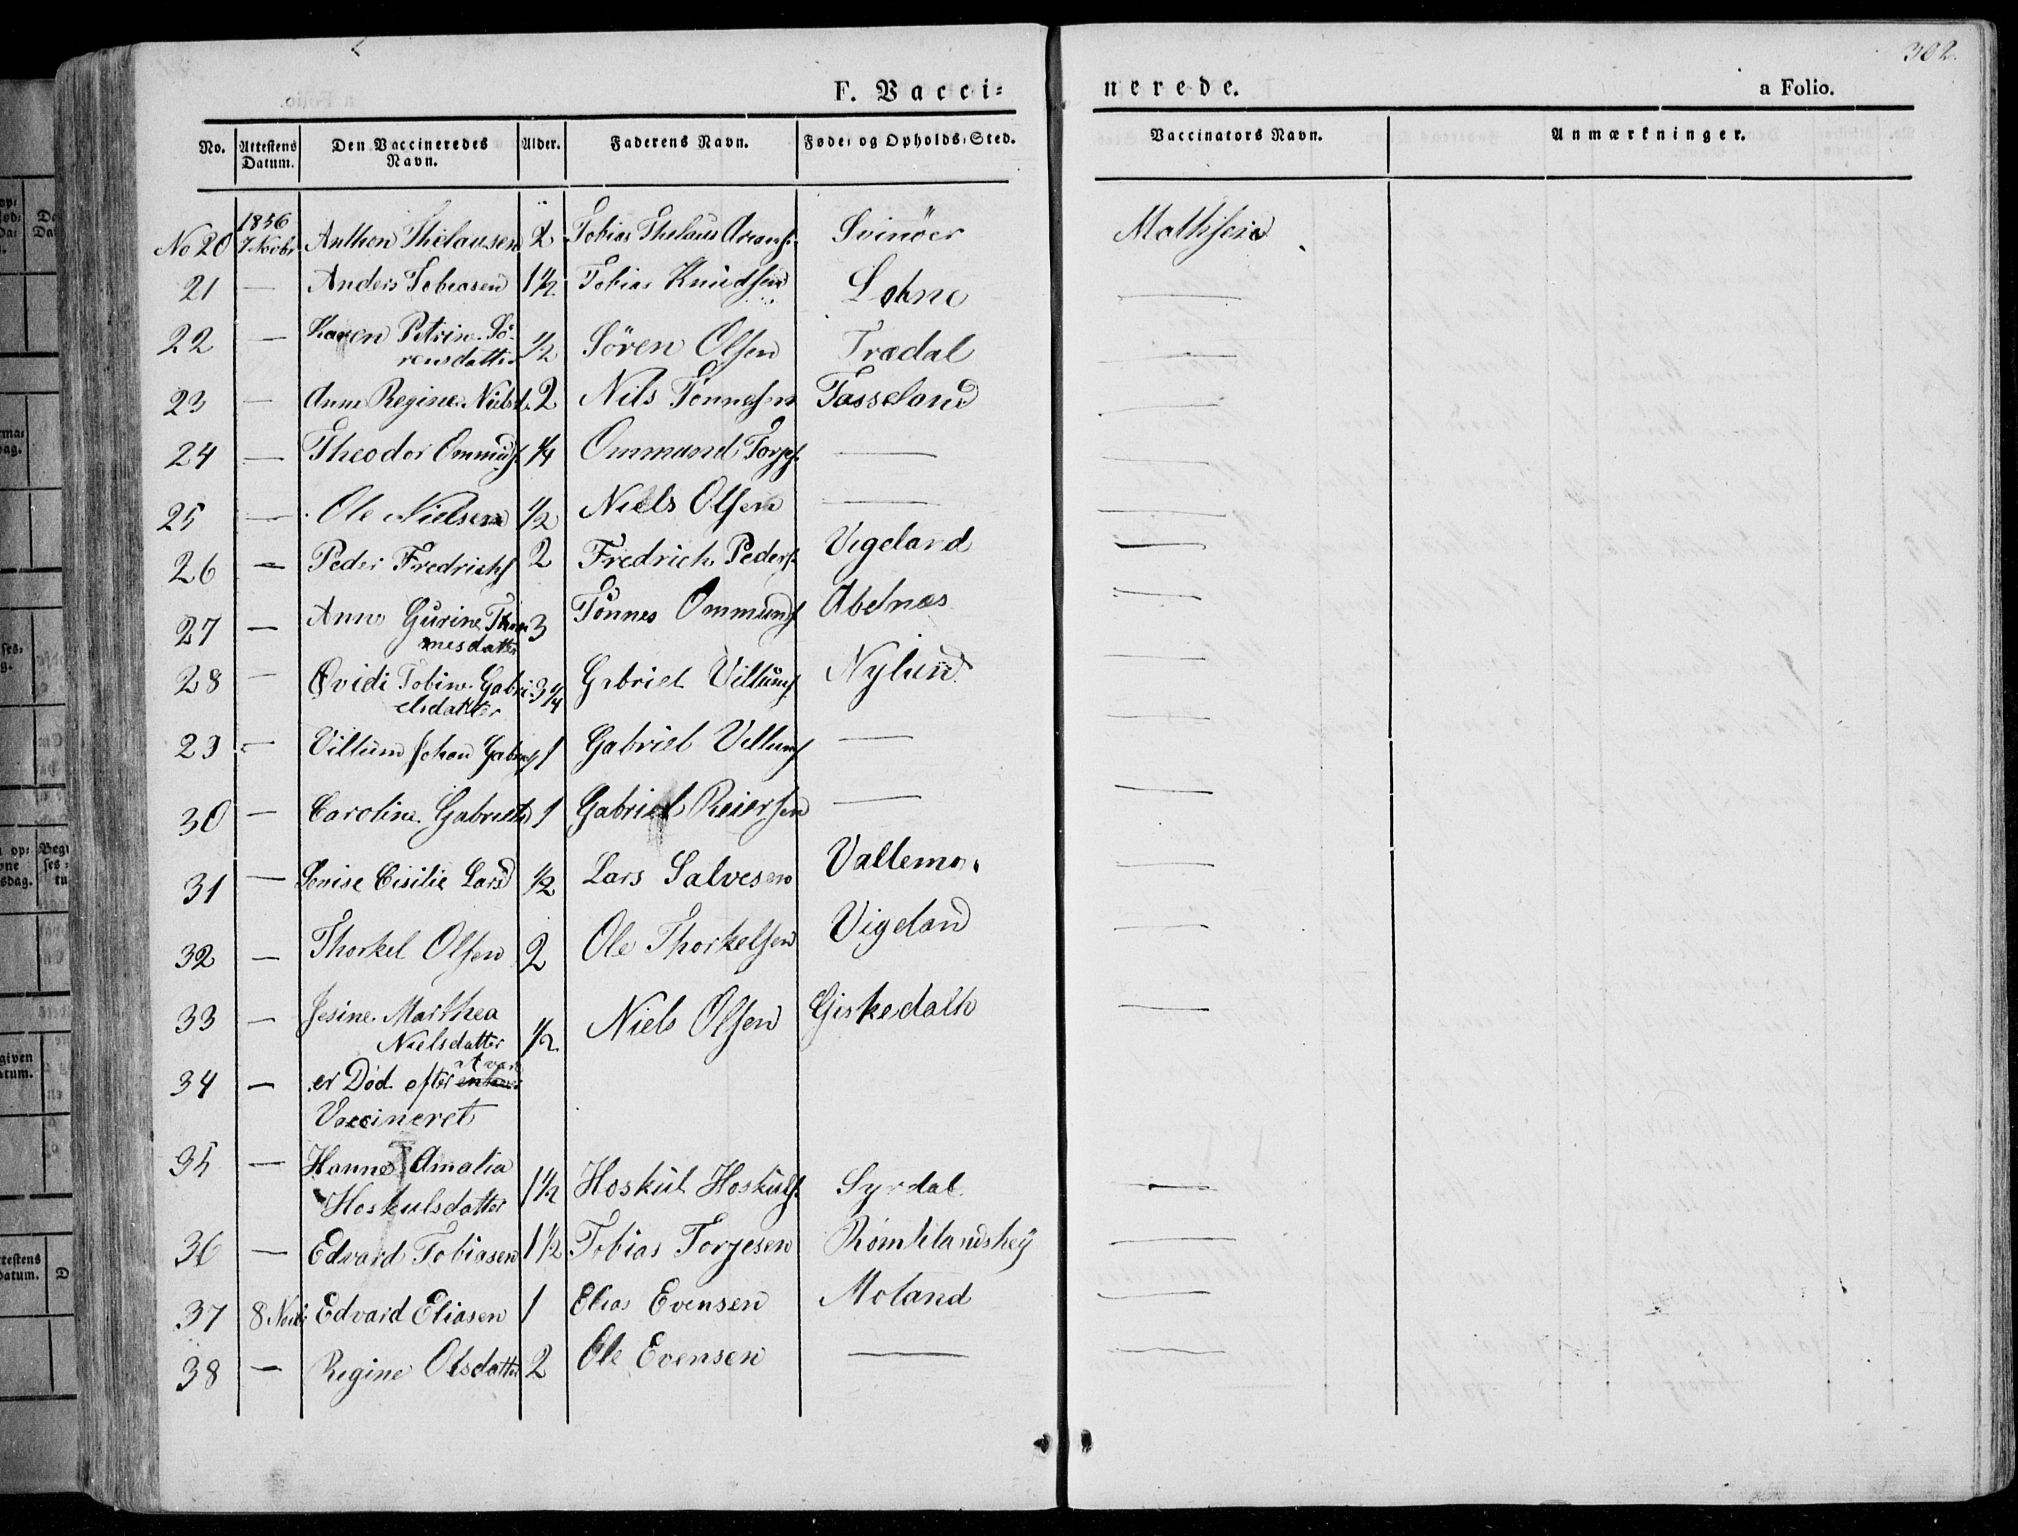 302.
F. Vacci= nerede. a Folio.
No. Attestens Datum. Den Vaccineredes Navn. Alder. Faderens Navn. Føde= og Opholds=Sted. Vaccinators Navn. Anmærkninger.
1856
No 20 7 Novbr Anthon Thelausen 2 Tobias Thelaus Svinöer Mathisen
21 — Anders Tobiasen 1 1/2 Tobias Knudsen Lohne —
22 — Karen Petrine Sö-
rensdatter 1/2 Sören Olsen Trædal —
23 — Anne Regine Nielsd. 2 Nils Tönnesen Tasseland —
24 — Theodor Ommunds 1/4 Ommund Torjes. — —
25 — Ole Nielsen 1/2 Niels Olsen — —
26 — Peder Fredrichs 2 Fredrich Peders. Vigeland —
27 — Anne Gurine Thön-
nesdatter 3 Tönnes Ommunds Abelnæs —
28 — Ovidi Tobine Gabri-
elsdatter 3 1/4 Gabriel Villums Nylund —
29 — Villum Johan Gabriels 1 Gabriel Villums — —
30 — Caroline Gabriels 1 Gabriel Reiersen — —
31 — Lovise Cisilie Larsd 1/2 Lars Salvesen Vallemo. —
32 — Thorkel Olsen 2 Ole Thorkelsen Vigeland —
33 — Jesine Marthea
Nielsdatter 1/2 Niels Olsen Giskedalh —
34 — er Död efter at var
Vaccineret
35 — Hanne Amalia
Hoskulsdatter 1 1/2 Hoskul Hoskuls. Syrdal —
36 — Edvard Tobiasen 1 1/2 Tobias Torjesen Romtlandshey —
37 8 Novbr Edvard Eliasen 1 Elias Evensen Moland —
38 — Regine Olsdatter 2 Ole Evensen — —